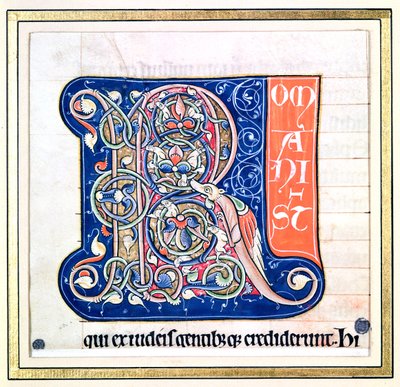 ROM
A
NI
ST
qui ex iudeis gentibꝫ qꝫ crediderunt. Hi